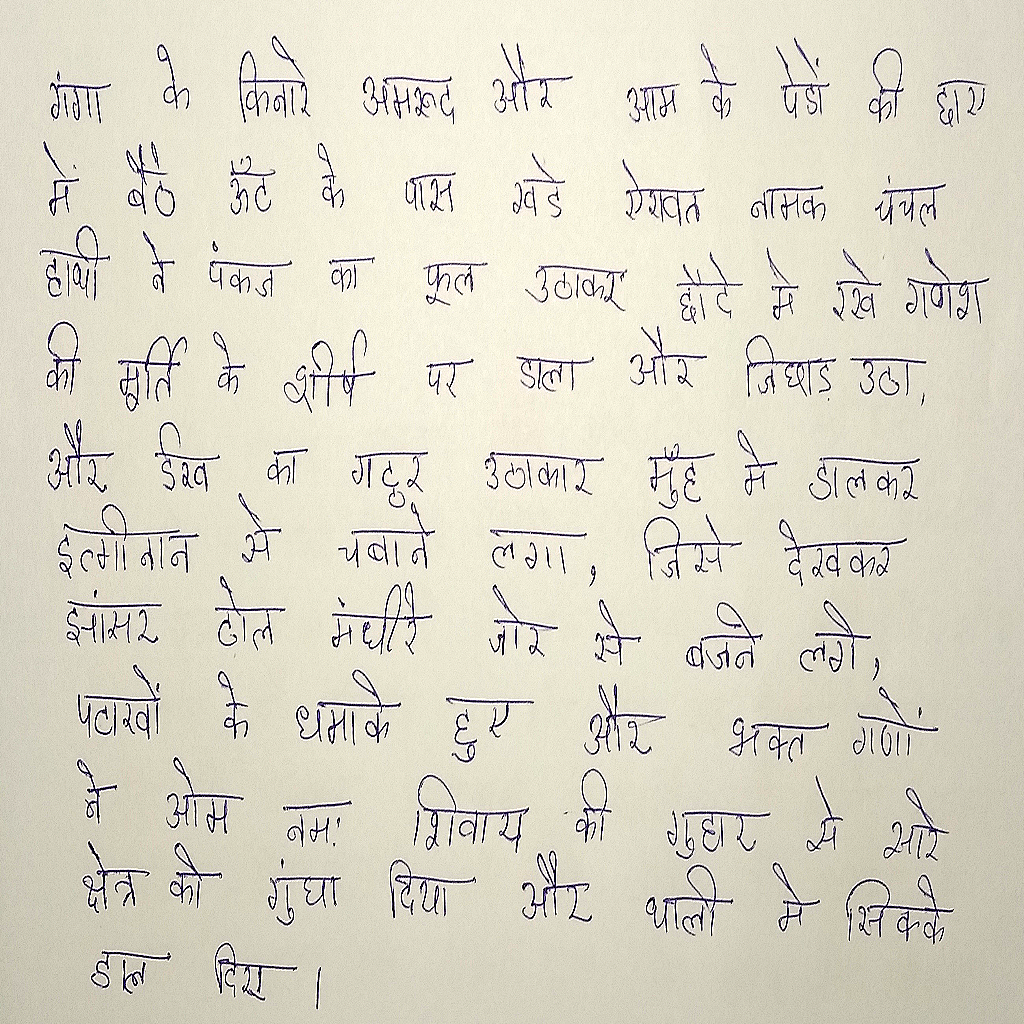 गंगा के किनारे अमरूद और आम के पेडों की छाए
में बैठे ऊँट के पास खडे ऐरावत नामक चंचल
हाथी ने पंकज का फूल उठाकर छौटे मे रखे गणेश
की मूर्ति के शीर्ष पर डाला और जिघाड़ उठा,
और ईख का गट्ठर उठाकार मुँह मे डालकर
इत्मीनान से चबाने लगा, जिसे देखकर
झांसर ढोल मंधीरे जोर से बजने लगे,
पटाखों के धमाके हुए और भक्त गणों
ने ओम नमः शिवाय की गुहार से सारे
क्षेत्र को गुंघा दिया और थाली मे सिक्के
डाल दिए ।